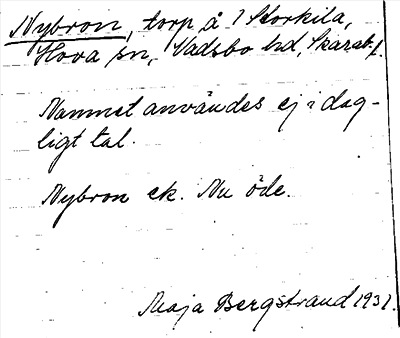 Nybron, torp å 1 Storkila,
Hova sn, Vadsbo hd, Skarab.l.
Namnet användes ej i dag-
ligt tal.
Nybron ek. Nu öde.
Maja Bergstrand 1931.